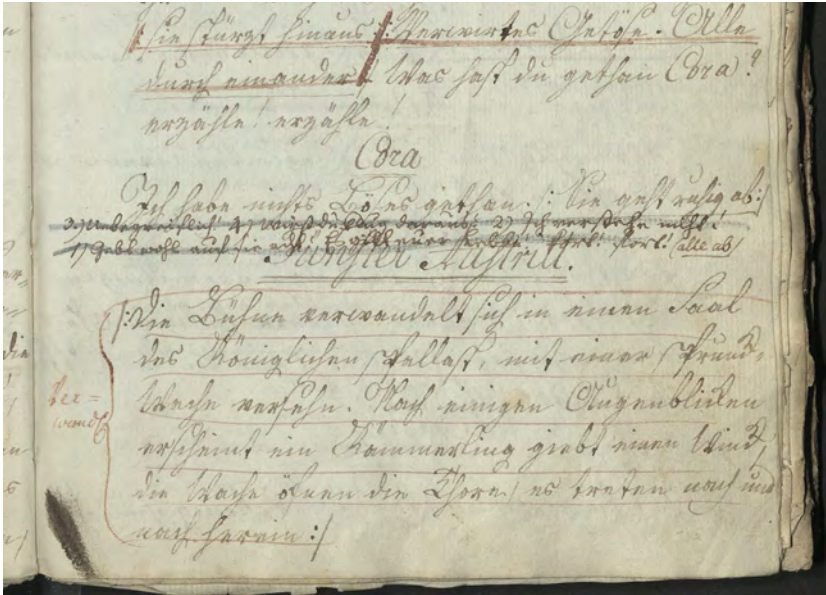 /: sie stürzt hinaus :/: Verwirrtes Getöse. Alle
durch einander :/ Was hast du gethan Cora?
erzähle! erzähle!
Cora
Ich habe nichts Böses gethan. /: Sie geht ruhig ab :/
3.) Unbegreiflich! 4.) wirst du klug daraus? 2) Ich verstehe nicht!
1) Gebt wohl auf sie acht! Es gilt euer fort! fort! (alle ab)
Fünfter Auftritt.
/: Die Bühne verwandelt sich in einen Saal
des Königlichen Pallast, mit einer
Wache versehn. Nach einigen Augenblicken
erscheint ein Kämmerling giebt einen Wink,
die Wache öfnen die Thore / es treten nach und
nach herein :/
Ver=
wandl